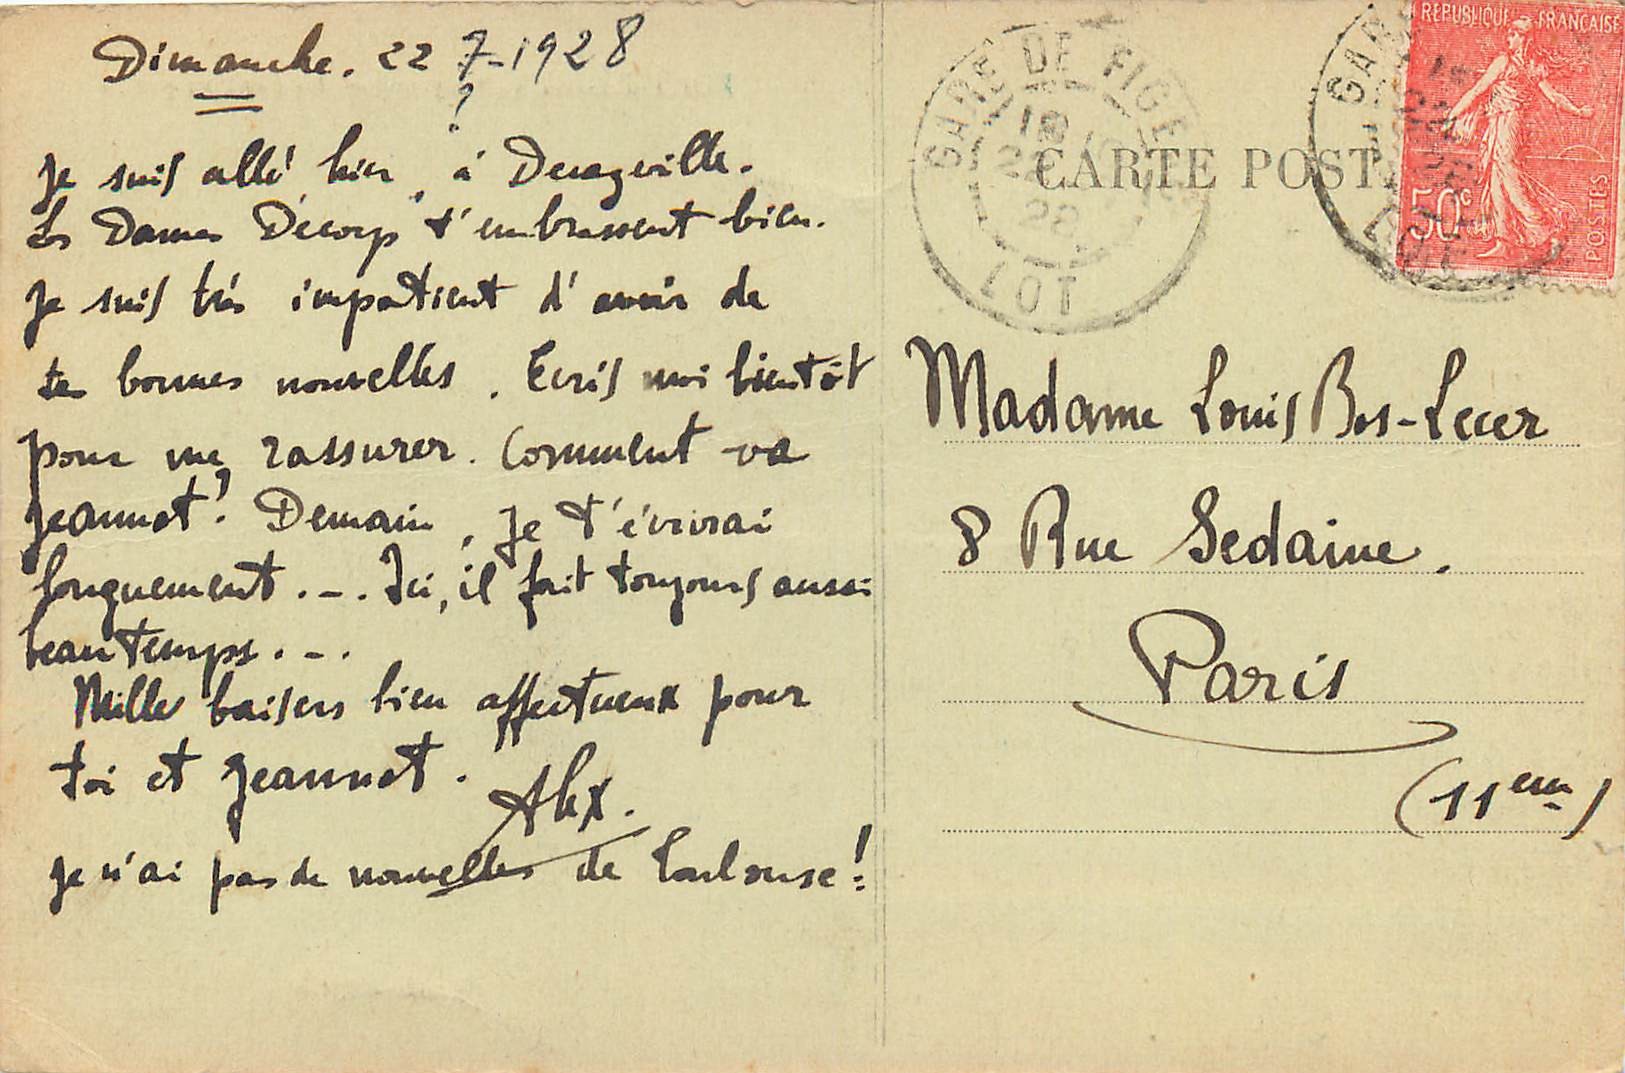 Dimanche. 22 7-1928
?
Je suis allé, hier, à Decazeville.
Les Dames Décorps t'embrassent bien.
Je suis très impatient d'avoir de
tes bonnes nouvelles. Ecris moi bientôt
pour me rassurer. Comment va
Jeannot? Demain, je t'écrirai
longuement . - . Ici, il fait toujours aussi
beau temps . - .
Mille baisers bien affectueux pour
toi et Jeannot.
Alex.
Je n'ai pas de nouvelles de Toulouse!
GARE DE FIGE
22
28
LOT
CARTE POST
REPUBLIQUE FRANÇAISE
50c
POSTES
GAR
LOT
Madame Louis Bos-Lecer
8 Rue Sedaine.
Paris
(11eme)